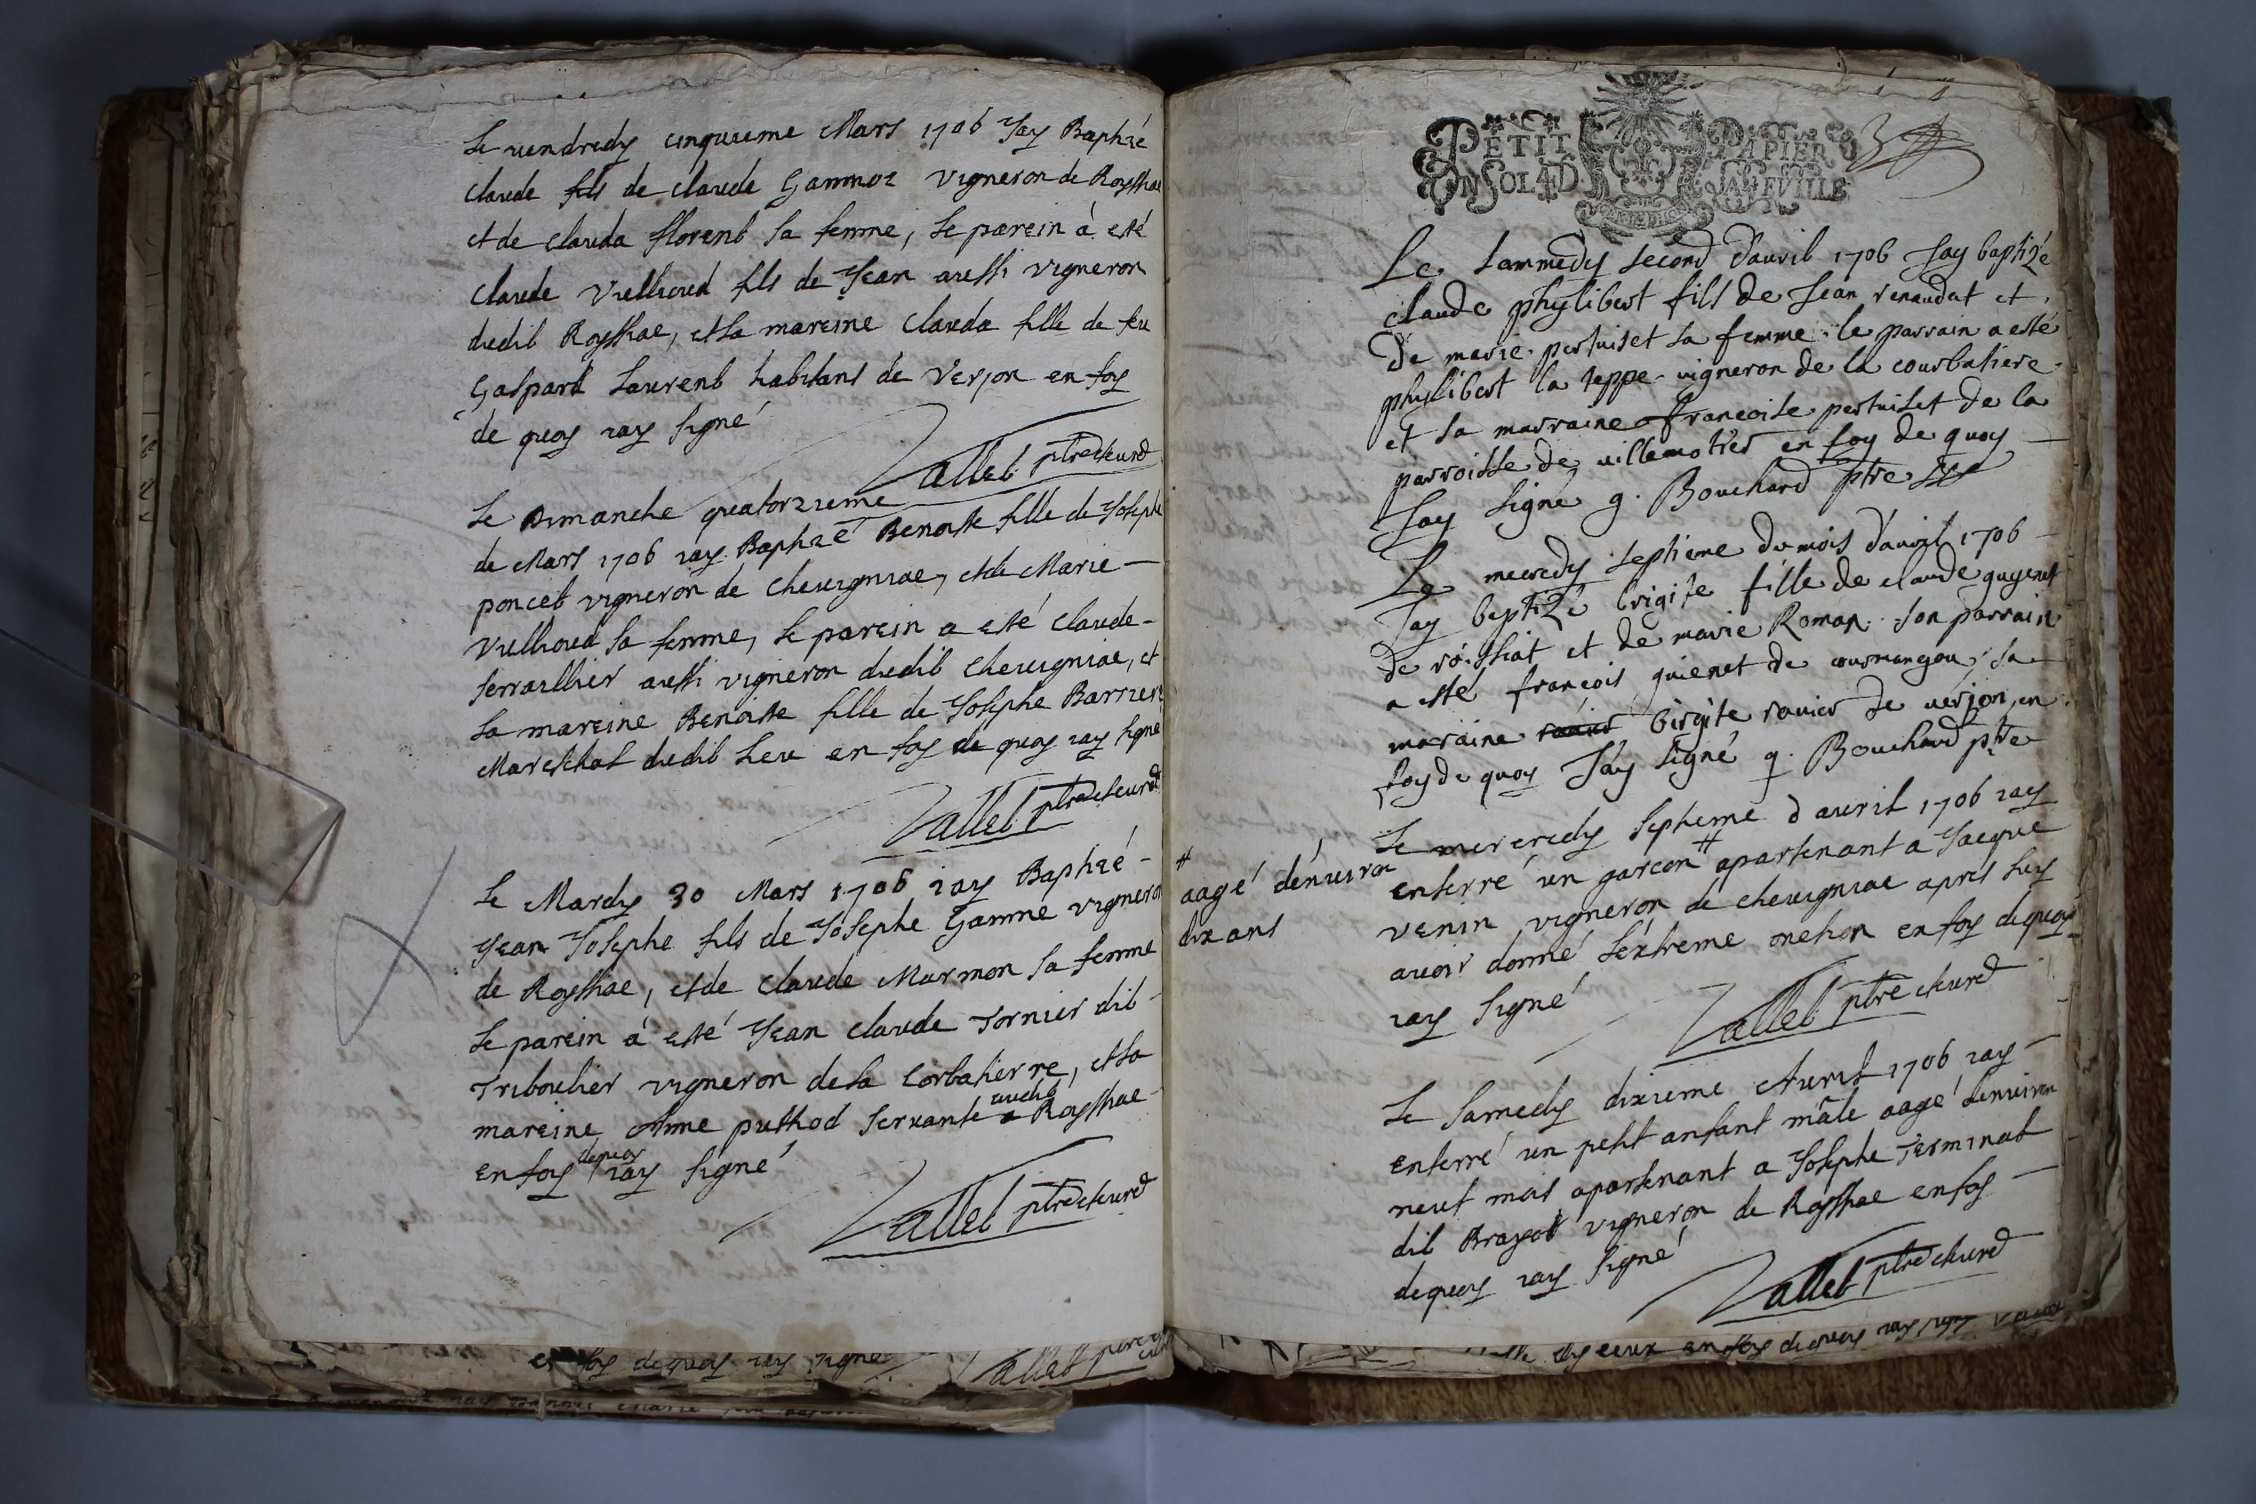 Le vendredy cinquieme Mars 1706 Jay Baptizé
claude fils de claude Gammoz vigneron de Roissiac
et de clauda florent sa femme, Le parein à esté
claude Vuillioud fils de Jean aussi vigneron
dudit Roissiac, et la mareine Clauda fille de feu
Gaspard Laurent habitans de Verjon en foy
de quoy iay signé
Vallet ptre & curé
Le Dimanche quatorzieme
de Mars 1706 iay Baptizé Benoitte fille de Josephe
poncet vigneron de cheuigniac, et de Marie
Vuillioud sa femme, Le parein a esté claude
serraillier aussi vigneron dudit cheuigniac, et
La mareine Benoitte fille de Josephe Barrier
Mareschal dudit Lieu en foy de quoy iay signé
Vallet ptre & curé
Le Mardy 30 Mars 1706 iay Baptizé
Jean Josephe fils de Josephe Gamme vigneron
de Roissiac, et de claude Marmon sa femme
Le parein à esté Jean claude Tornier dit
Triboulier vigneron de la Corbatierre, et la
mareine Anne puthod servante audit Roissiac
en foy de quoy iay signé
Vallet ptre & curé
en foy de quoy iay signé
Vallet ptre
PETIT PAPIER
UN SOL 4 D LA FEUILLE
Le sammedy second d'auril 1706 Jay baptizé
claude phylibert fils de Jean renaudat et
de marie pertuiset sa femme. le parrain a esté
phylibert la teppe vigneron de la courbatiere
et sa marraine francoise pertuiset de la
parroisse de villemotier en foy de quoy
Jay signé g. Bouchard ptre
Le mecredy septieme du mois d'auril 1706
Jay baptizé brigite fille de claude guyenet
de roissiat et de marie Roman. son parrain
a esté françois guienet de courmangou, sa
maraine birgite rouier de verjon, en
foy de quoy J'ay signé g. Bouchard ptre
Le mercredy septieme d'auril 1706 iay
enterré un garcon # apartenant a Jacque
# aagé d'enuiron
dix ans
venin vigneron de cheuigniac aprés luy
auoir donné L'extreme onction en foy de quoy
iay signé
Vallet ptre & curé
Le samedy dixieme Auril 1706 iay
enterré un petit anfant mâle aagé d'enuiron
neuf mois apartenant a Josephe Terminat
dit Brayot vigneron de Roissiac en foy
de quoy iay signé
Vallet ptre & curé
en foy de quoy iay signé